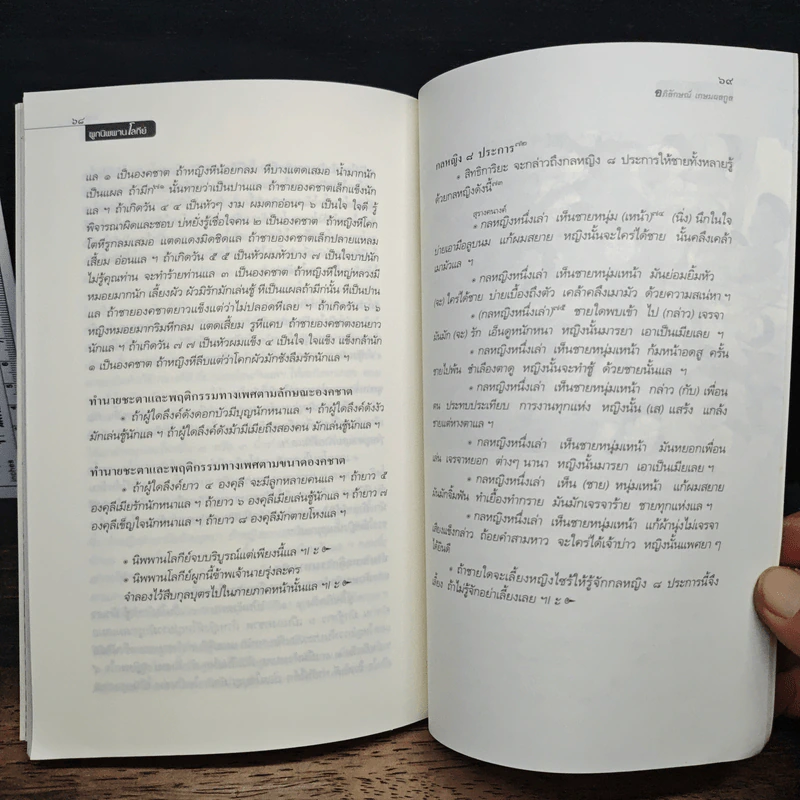 ๖๘
ผูกนิพพานโลกีย์
แล ๑ เป็นองคชาต ถ้าหญิงทีน้อยกลม ทีบางแตดเสมอ น้ำมากนัก
เป็นแผล ถ้ามีก^๗๑ นั้นทายว่าเป็นปานแล ถ้าชายองคชาตเล็กแข็งนัก
แล ฯ ถ้าเกิดวัน ๔ ๔ เป็นหัวๆ งาม ผมดกอ่อนๆ ๖ เป็นใจ ใจดี รู้
พิจารณาผิดและชอบ บ่หยังรู้เชื่อใจคน ๒ เป็นองคชาต ถ้าหญิงทีโคก
โตทีรูกลมเสมอ แตดแดงมิดชิดแล ถ้าชายองคชาตเล็กปลายแหลม
เสี้ยม อ่อนแล ฯ ถ้าเกิดวัน ๕ ๕ เป็นหัวผมหัวบาง ๗ เป็นใจบาปนัก
ไม่รู้คุณท่าน จะทำร้ายท่านแล ๓ เป็นองคชาต ถ้าหญิงทีใหญ่หลวงมี
หมอยมากนัก เลี้ยงผัว ผัวมิรักมักเล่นชู้ ทีเป็นแผลถ้ามีกนั้น ทีเป็นปาน
แล ถ้าชายองคชาตยาวแข็งแต่ว่าไม่ปลอดทีเลย ฯ ถ้าเกิดวัน ๖ ๖
หญิงหมอยมากริมทีกลม แตดเสี้ยม รูทีแคบ ถ้าชายองคชาตงอนยาว
นักแล ฯ ถ้าเกิดวัน ๗ ๗ เป็นหัวผมแข็ง ๔ เป็นใจ ใจแข็ง แข็งกล้านัก
๑ เป็นองคชาต ถ้าหญิงทีลีบแต่ว่าโคกผัวมักชังลืมรักนักแล ฯ
ทำนายชะตาและพฤติกรรมทางเพศตามลักษณะองคชาต
• ถ้าผู้ใดลึงค์ดังดอกบัวมีบุญนักหนาแล ฯ ถ้าผู้ใดลึงค์ดังงัว
มักเล่นชู้นักแล ฯ ถ้าผู้ใดลึงค์ดังม้ามีเมียถึงสองคน มักเล่นชู้นักแล ฯ
ทำนายชะตาและพฤติกรรมทางเพศตามขนาดองคชาต
• ถ้าผู้ใดลึงค์ยาว ๔ องคุลี จะมีลูกหลายคนแล ฯ ถ้ายาว ๕
องคุลีเมียเล่นชู้นักแล ฯ ถ้ายาว ๖ องคุลีเมียเล่นชู้นักแล ฯ ถ้ายาว ๗
องคุลีเข็ญใจนักหนาแล ฯ ถ้ายาว ๘ องคุลีมักตายโหงแล ฯ
• นิพพานโลกีย์จบบริบูรณ์แต่เพียงนี้แล ฯ। ะ ๛
• นิพพานโลกีย์ผูกนี้ข้าพเจ้านายรุ่งละคร
จำลองไว้สืบกุลบุตรไปในภายภาคหน้านั้นแล ฯ। ะ ๛
๖๙
อภิลักษณ์ เกษมผลกูล
กลหญิง ๘ ประการ^๗๒
• สิทธิการิยะ จะกล่าวถึงกลหญิง ๘ ประการให้ชายทั้งหลายรู้
ด้วยกลหญิงดังนี้^๗๓
สุรางคนางค์
• กลหญิงหนึ่งเล่า เห็นชายหนุ่ม (เหน้า)^๗๔ (นิ่ง) นึกในใจ
บ่ายเอามือลูบนม แก้ผมสยาย หญิงนั้นจะใคร่ได้ชาย นั้นคลึงเคล้า
เมามัวแล ฯ
• กลหญิงหนึ่งเล่า เห็นชายหนุ่มเหน้า มันย่อมยิ้มหัว
(จะ) ใคร่ได้ชาย บ่ายเบื้องถึงตัว เคล้าคลึงเมามัว ด้วยความเสน่หา ฯ
• (กลหญิงหนึ่งเล่า)^๗๕ ชายใดพบเข้า ไป (กล่าว) เจรจา
มันมัก (จะ) รัก เอ็นดูหนักหนา หญิงนั้นมารยา เอาเป็นเมียเลย ฯ
• กลหญิงหนึ่งเล่า เห็นชายหนุ่มเหน้า ก้มหน้าอดสู ครั้น
ชายไปพ้น ชำเลืองตาดู หญิงนั้นจะทำชู้ ด้วยชายนั้นแล ฯ
• กลหญิงหนึ่งเล่า เห็นชายหนุ่มเหน้า กล่าว (กับ) เพื่อน
คน ประทบประเทียบ การงานทุกแห่ง หญิงนั้น (เส) แสร้ง แกล้ง
ชายต่างตาแล ฯ
• กลหญิงหนึ่งเล่า เห็นชายหนุ่มเหน้า มันหยอกเพื่อน
เล่น เจรจาหยอก ต่างๆ นานา หญิงนั้นมารยา เอาเป็นเมียเลย ฯ
• กลหญิงหนึ่งเล่า เห็น (ชาย) หนุ่มเหน้า แก้ผมสยาย
มันมักจิ้มฟัน ทำเยื้องทำกราย มันมักเจรจาร้าย ชายทุกแห่งแล ฯ
• กลหญิงหนึ่งเล่า เห็นชายหนุ่มเหน้า แก้ผ้านุ่งไม่เจรจา
เสียงแข็งกล่าว ถ้อยคำสามหาว จะใคร่ได้เจ้าบ่าว หญิงนั้นแพศยา ๆ
ได้ยินดี
• ถ้าชายใดจะเลี้ยงหญิงไซร้ให้รู้จักกลหญิง ๘ ประการนี้จึง
เลี้ยง ถ้าไม่รู้จักอย่าเลี้ยงเลย ฯ। ะ ๛